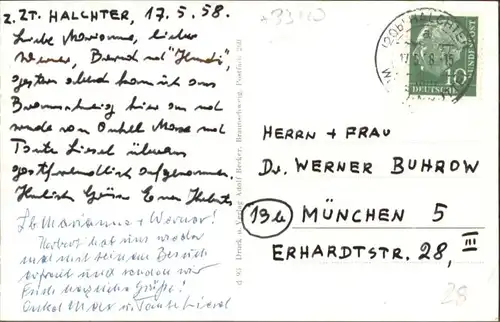 z. ZT. HALCHTER, 17.5.58.
Liebe Marianne, lieber
Werner, Bernd und "Hendi",
gestern abend kam ich aus
Braunschweig hier an und
wurde von Onkel Maxe und
Tante Liesel überaus
gastfreundlich aufgenommen.
Herzliche Grüsse Euer Herbert
Lb Marianne + Werner!
Herbert hat uns wieder
mal mit seinem Besuch
erfreut und senden wir
Euch herzliche Grüße!
Onkel Max u. Tante Liesel
d 93 Druck u. Verlag Adolf Becker, Braunschweig, Postfach 260
(20b) HALCHTER
10
DEUTSCHE
BUNDESPOST
HERRN + FRAU
Dr. WERNER BUHROW
13b MÜNCHEN 5
ERHARDTSTR. 28, III
28